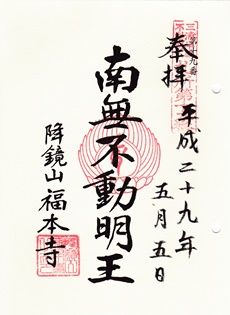 奉拝
平成二十九年
五月五日
南無不動明王
降鏡山福本寺